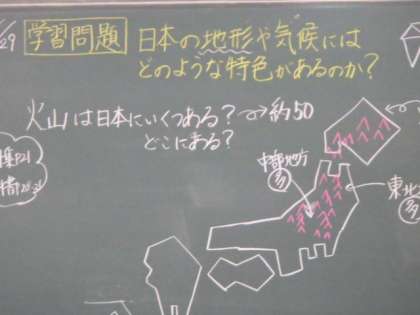 /29
学習問題
日本の地形や気候には
どのような特色があるのか?
火山は日本にいくつある?→約50
どこにある?
P21
中部地方
多
東北
多